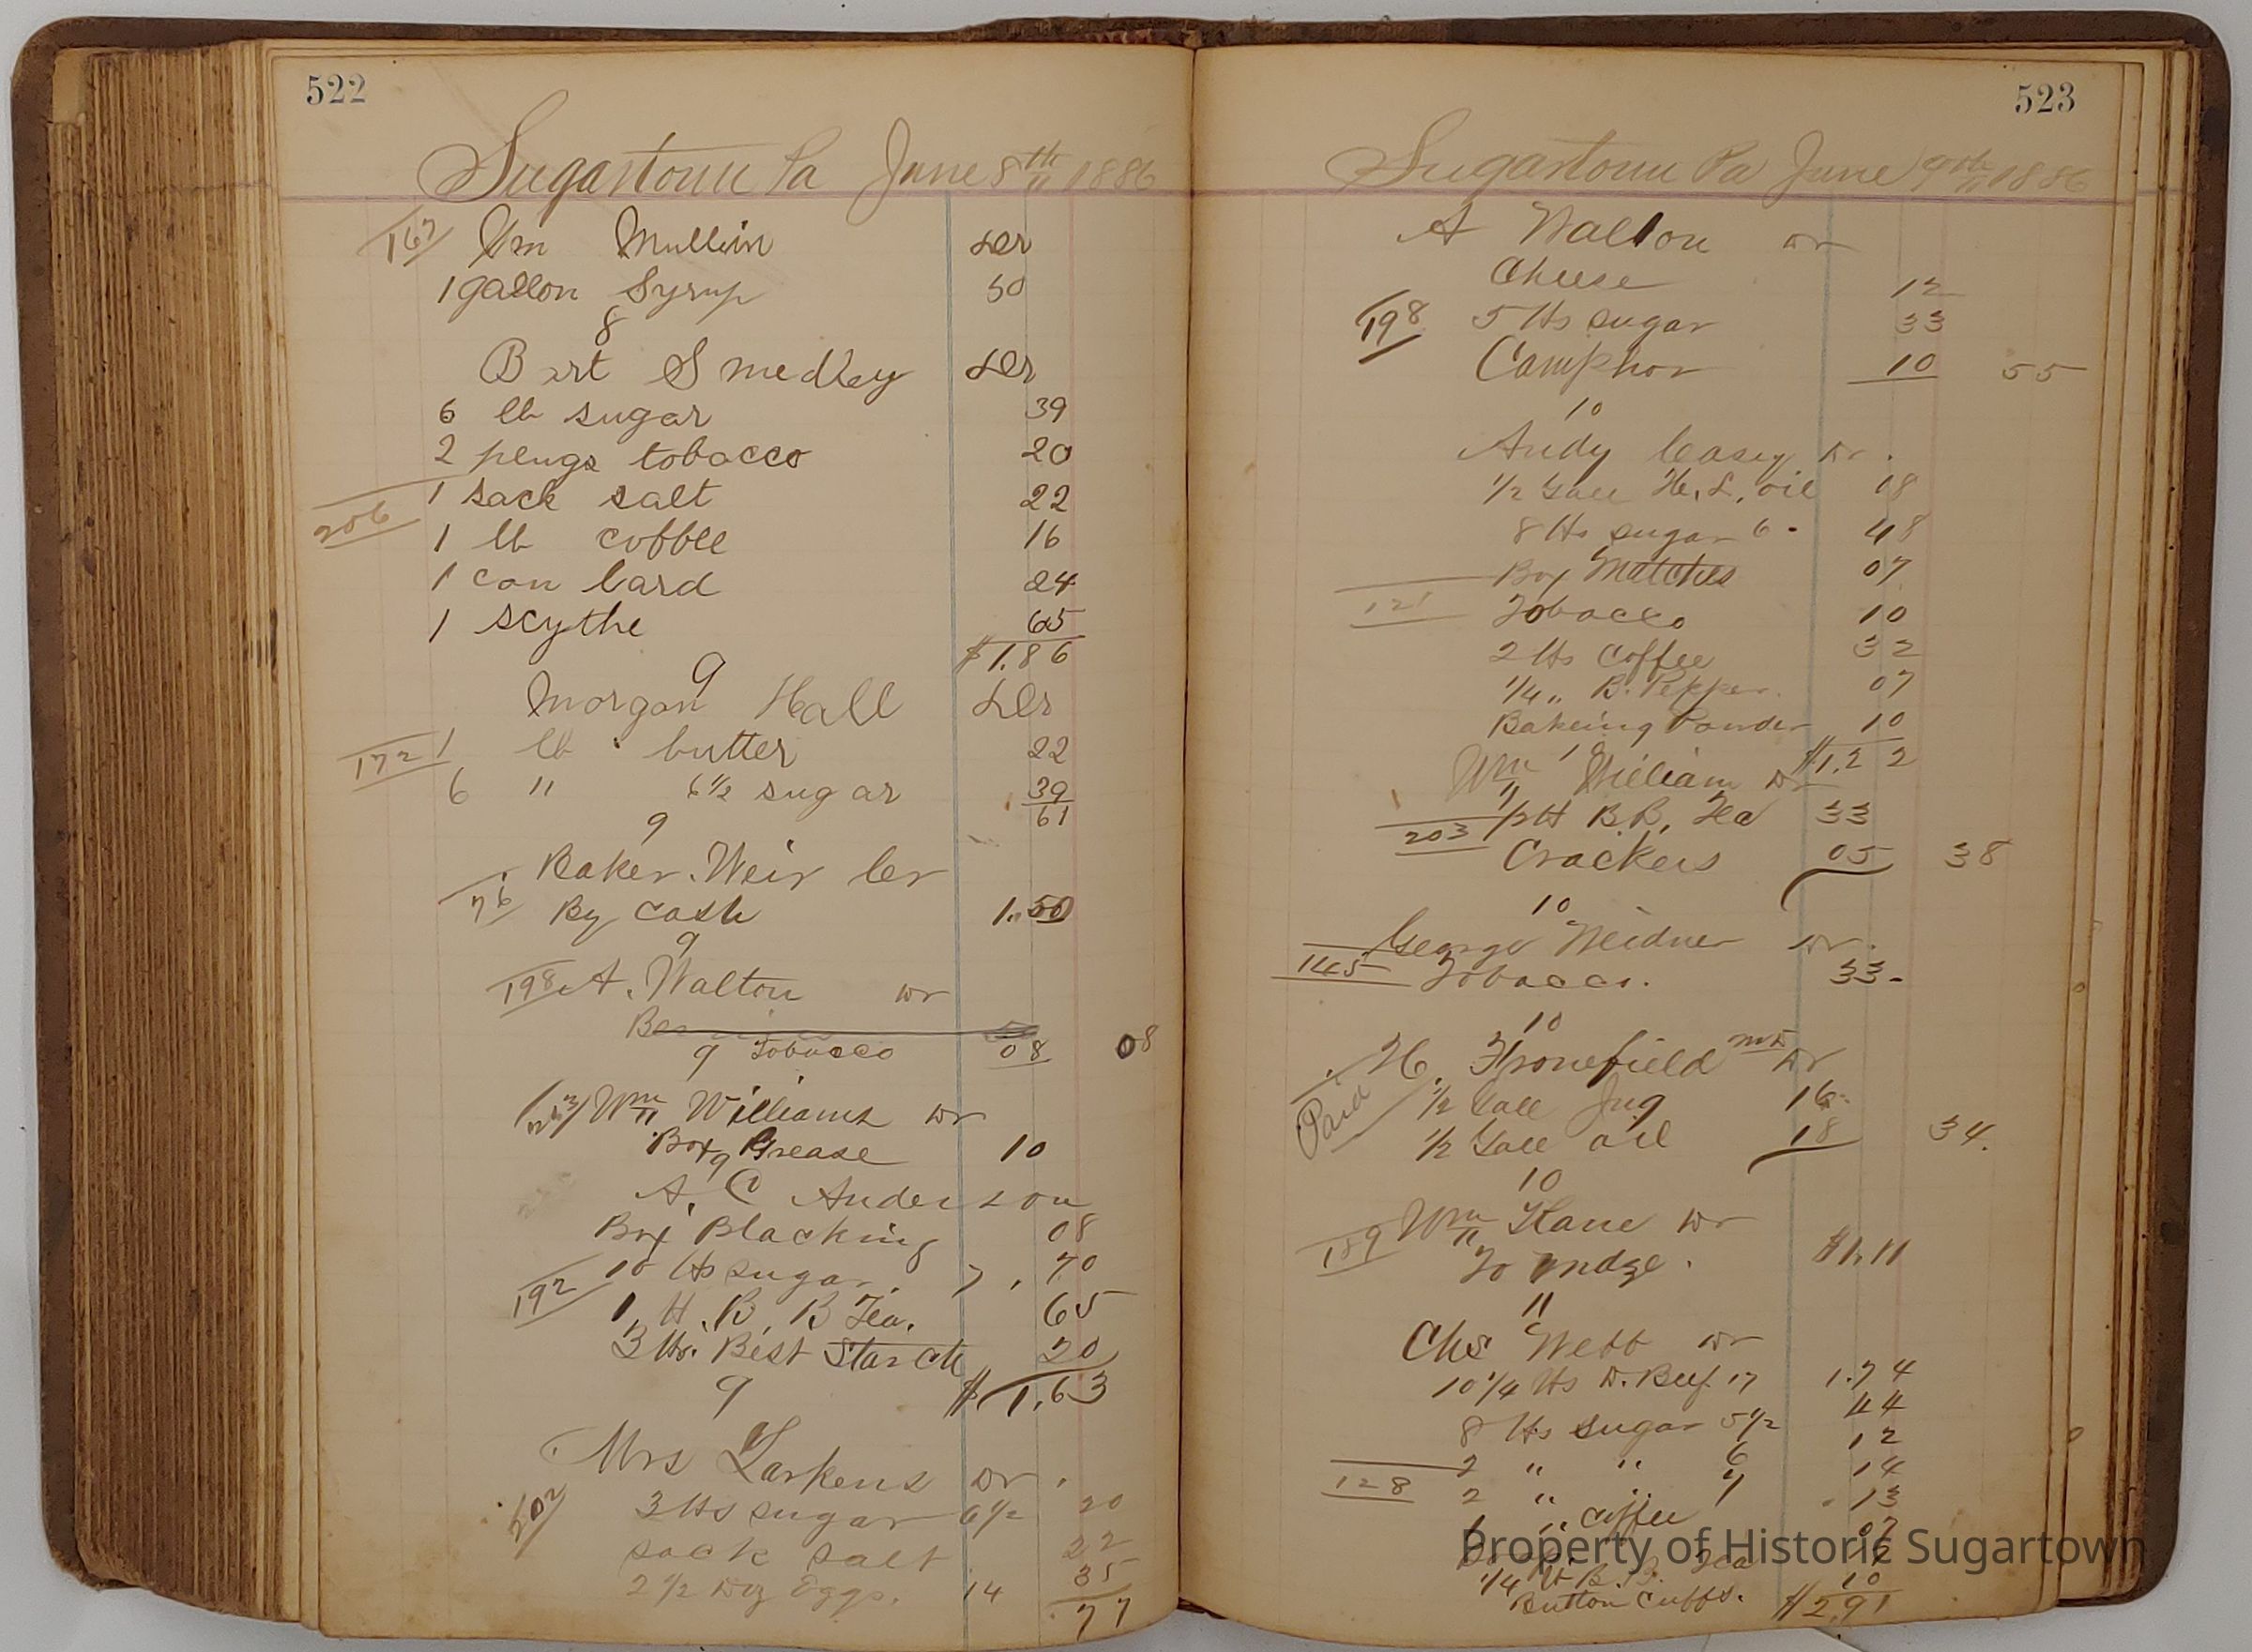 522
Sugartown Pa June 8th 1886
167 Wm Mullin Dr
1 gallon Syrup 50
8
Bart Smedley Dr
6 lb sugar 39
2 plugs tobacco 20
1 sack salt 22
206
1 lb coffee 16
1 can lard 24
1 scythe 65
$1.86
9
Morgan Hall Dr
172 1 lb butter 22
6 " 6 1/2 sugar 39
61
9
Baker Weir Cr
76 By Cash 1.50
9
198 A. Walton Dr
9 Tobacco 08 08
203 Wm Williams Dr
Box Grease 10
9
A. C Anderson
Box Blacking 08
10 lbs sugar 7. 70
192 1 lb. B. B Tea. 65
3 lbs. Best Starch 20
9 $1.63
Mrs Larkens Dr.
202 3 lbs sugar 6 1/2 20
sack salt 22
2 1/2 Doz Eggs. 14 35
77
523
Sugartown Pa June 9th 1886
A Walton Dr
Cheese 12
198 5 lbs sugar 33
Camphor 10 55
10
Andy Casey Dr.
1/2 Gall H. L. oil 18
8 lbs sugar 6 - 48
Box Matches 07
121 Tobacco 10
2 lbs Coffee 32
1/4 " B. Pepper. 07
Bakeing Powder 10
10 $1.22
Wm William Dr
203 1/2 lb B.B. Tea 33
Crackers 05 38
10
George Weidner Dr.
145 Tobacco. 33-
10
H. Fronefield Dr
Paid 1/2 Gall Jug 16
1/2 Gall oil 18 34.
10
189 Wm Kane Dr
To mdze. $1.11
11
Chs Webb Dr
10 1/4 lbs D. Beef 17 1.74
8 lbs sugar 5 1/2 44
2 " " 6 12
128 2 " " 7 14
1 " Coffee 13
07
1/4 lb B. B. Tea
Button Cuffs. 10
$2.91
Property of Historic Sugartown